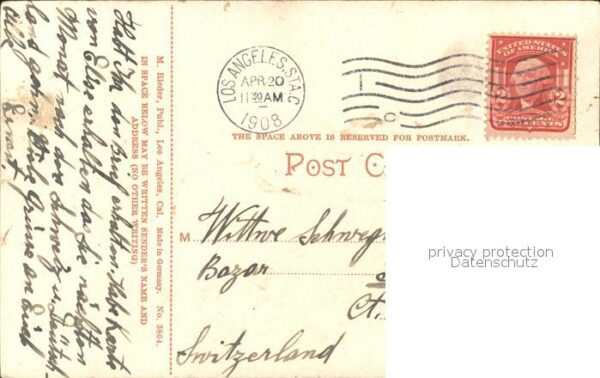 Habt Ihr den Brief erhalten. Habe Karte
von Elise erhalten das sie nächsten
Monat nach der Schweiz u. Deutsch-
land geon. Viele Grüsse an Euch
alle Ernest
M. Rieder, Publ., Los Angeles, Cal. Made in Germany. No. 3864.
IN SPACE BELOW MAY BE WRITTEN SENDER'S NAME AND
ADDRESS (NO OTHER WRITING)
LOS ANGELES, STA. C
APR 20
11 30 AM
1908
UNITED STATES
OF AMERICA
2 2
POSTAGE
CENTS
THE SPACE ABOVE IS RESERVED FOR POSTMARK.
POST C
M Wittwe Schweg
Bazar
Ct.
Switzerland
privacy protection
Datenschutz